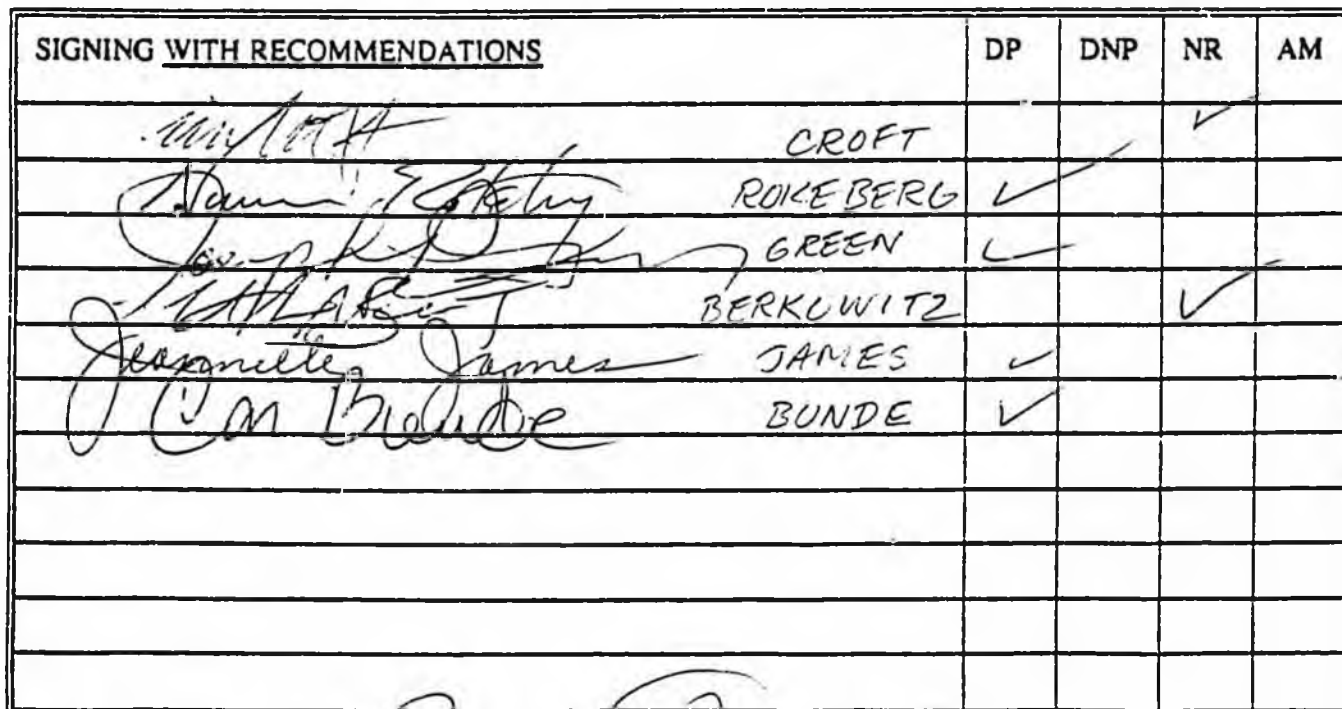 SIGNING WITH RECOMMENDATIONS DP DNP NR AM
CROFT ✓
ROKEBERG ✓
GREEN ✓
BERKOWITZ ✓
Jeannette James JAMES ✓
Con Bunde BUNDE ✓